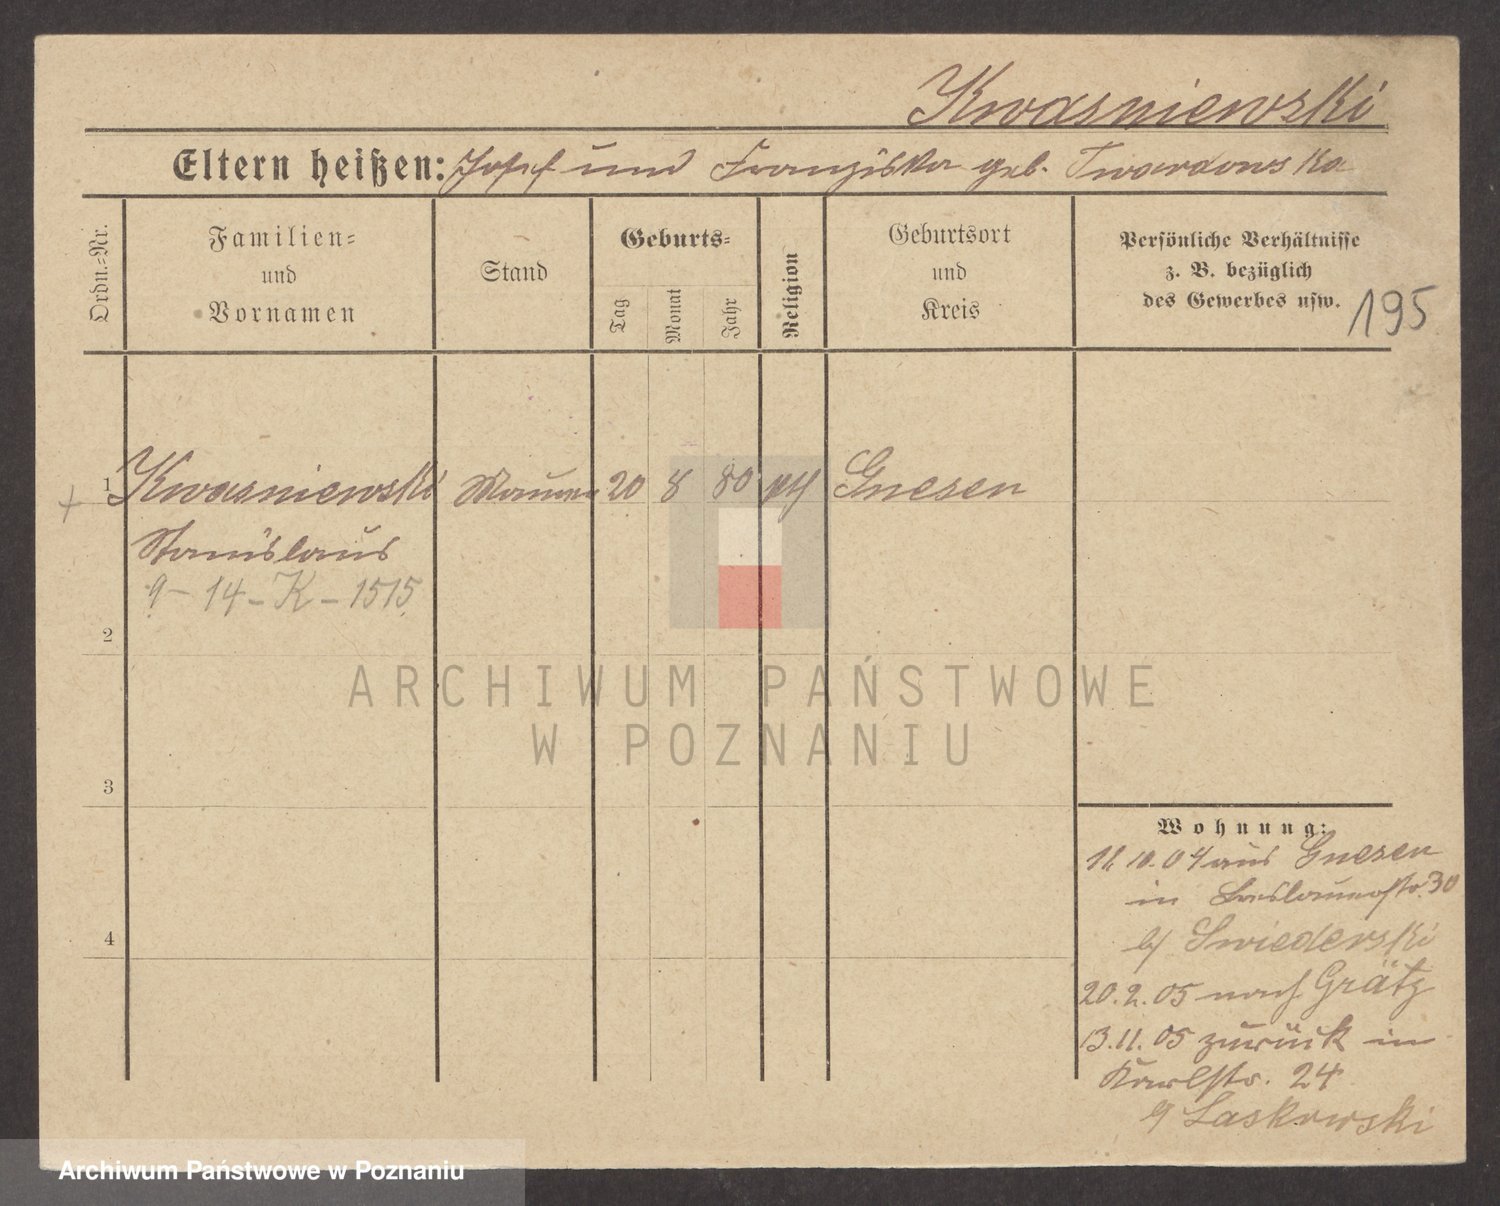 Kwasniewski
Eltern heißen: Josef und Franziska geb. Twardowska
Ordn.-Nr.
Familien-
und
Vornamen
Stand
Geburts-
Tag
Monat
Jahr
Religion
Geburtsort
und
Kreis
Persönliche Verhältnisse
z. B. bezüglich
des Gewerbes usw.
195
1 Kwasniewski Maurer 20 8 80 Gnesen
Stanislaus
9-14-K-1515
2
3
4
Wohnung:
11.10.04 aus Gnesen
in Breslauerstr. 30
b/ Swiederski
20.2.05 nach Grätz
13.11.05 zurück in
Karlstr. 24
b/ Laskowski
ARCHIWUM PAŃSTWOWE
W POZNANIU
Archiwum Państwowe w Poznaniu